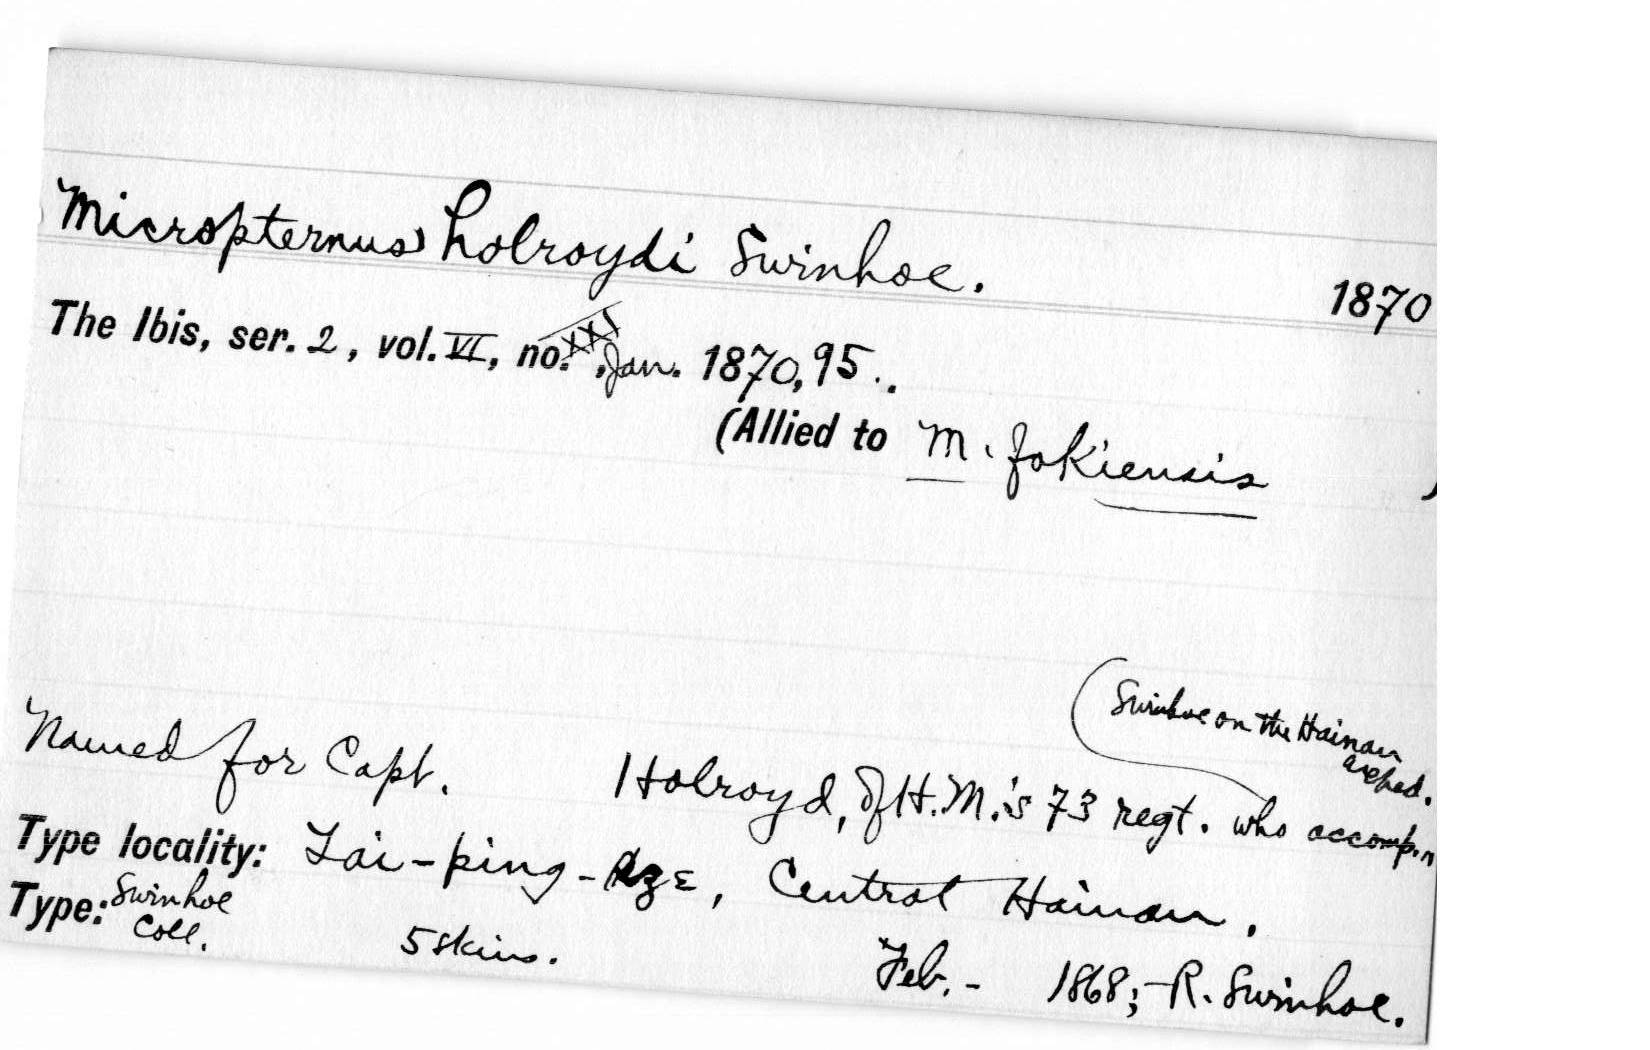 Micropternus holroydi Swinhoe.
1870
The Ibis, ser. 2, vol. VI, no. XXI, Jan. 1870, 95..
(Allied to M. fokiensis )
(Swinhoe on the Hainan
exped.
Named for Capt. Holroyd, of H.M.'s 73 regt. who accomp.n
Type locality: Tai-ping-sze, Central Hainan.
Type: Swinhoe
Coll. 5 skins. Feb. - 1868; - R. Swinhoe.